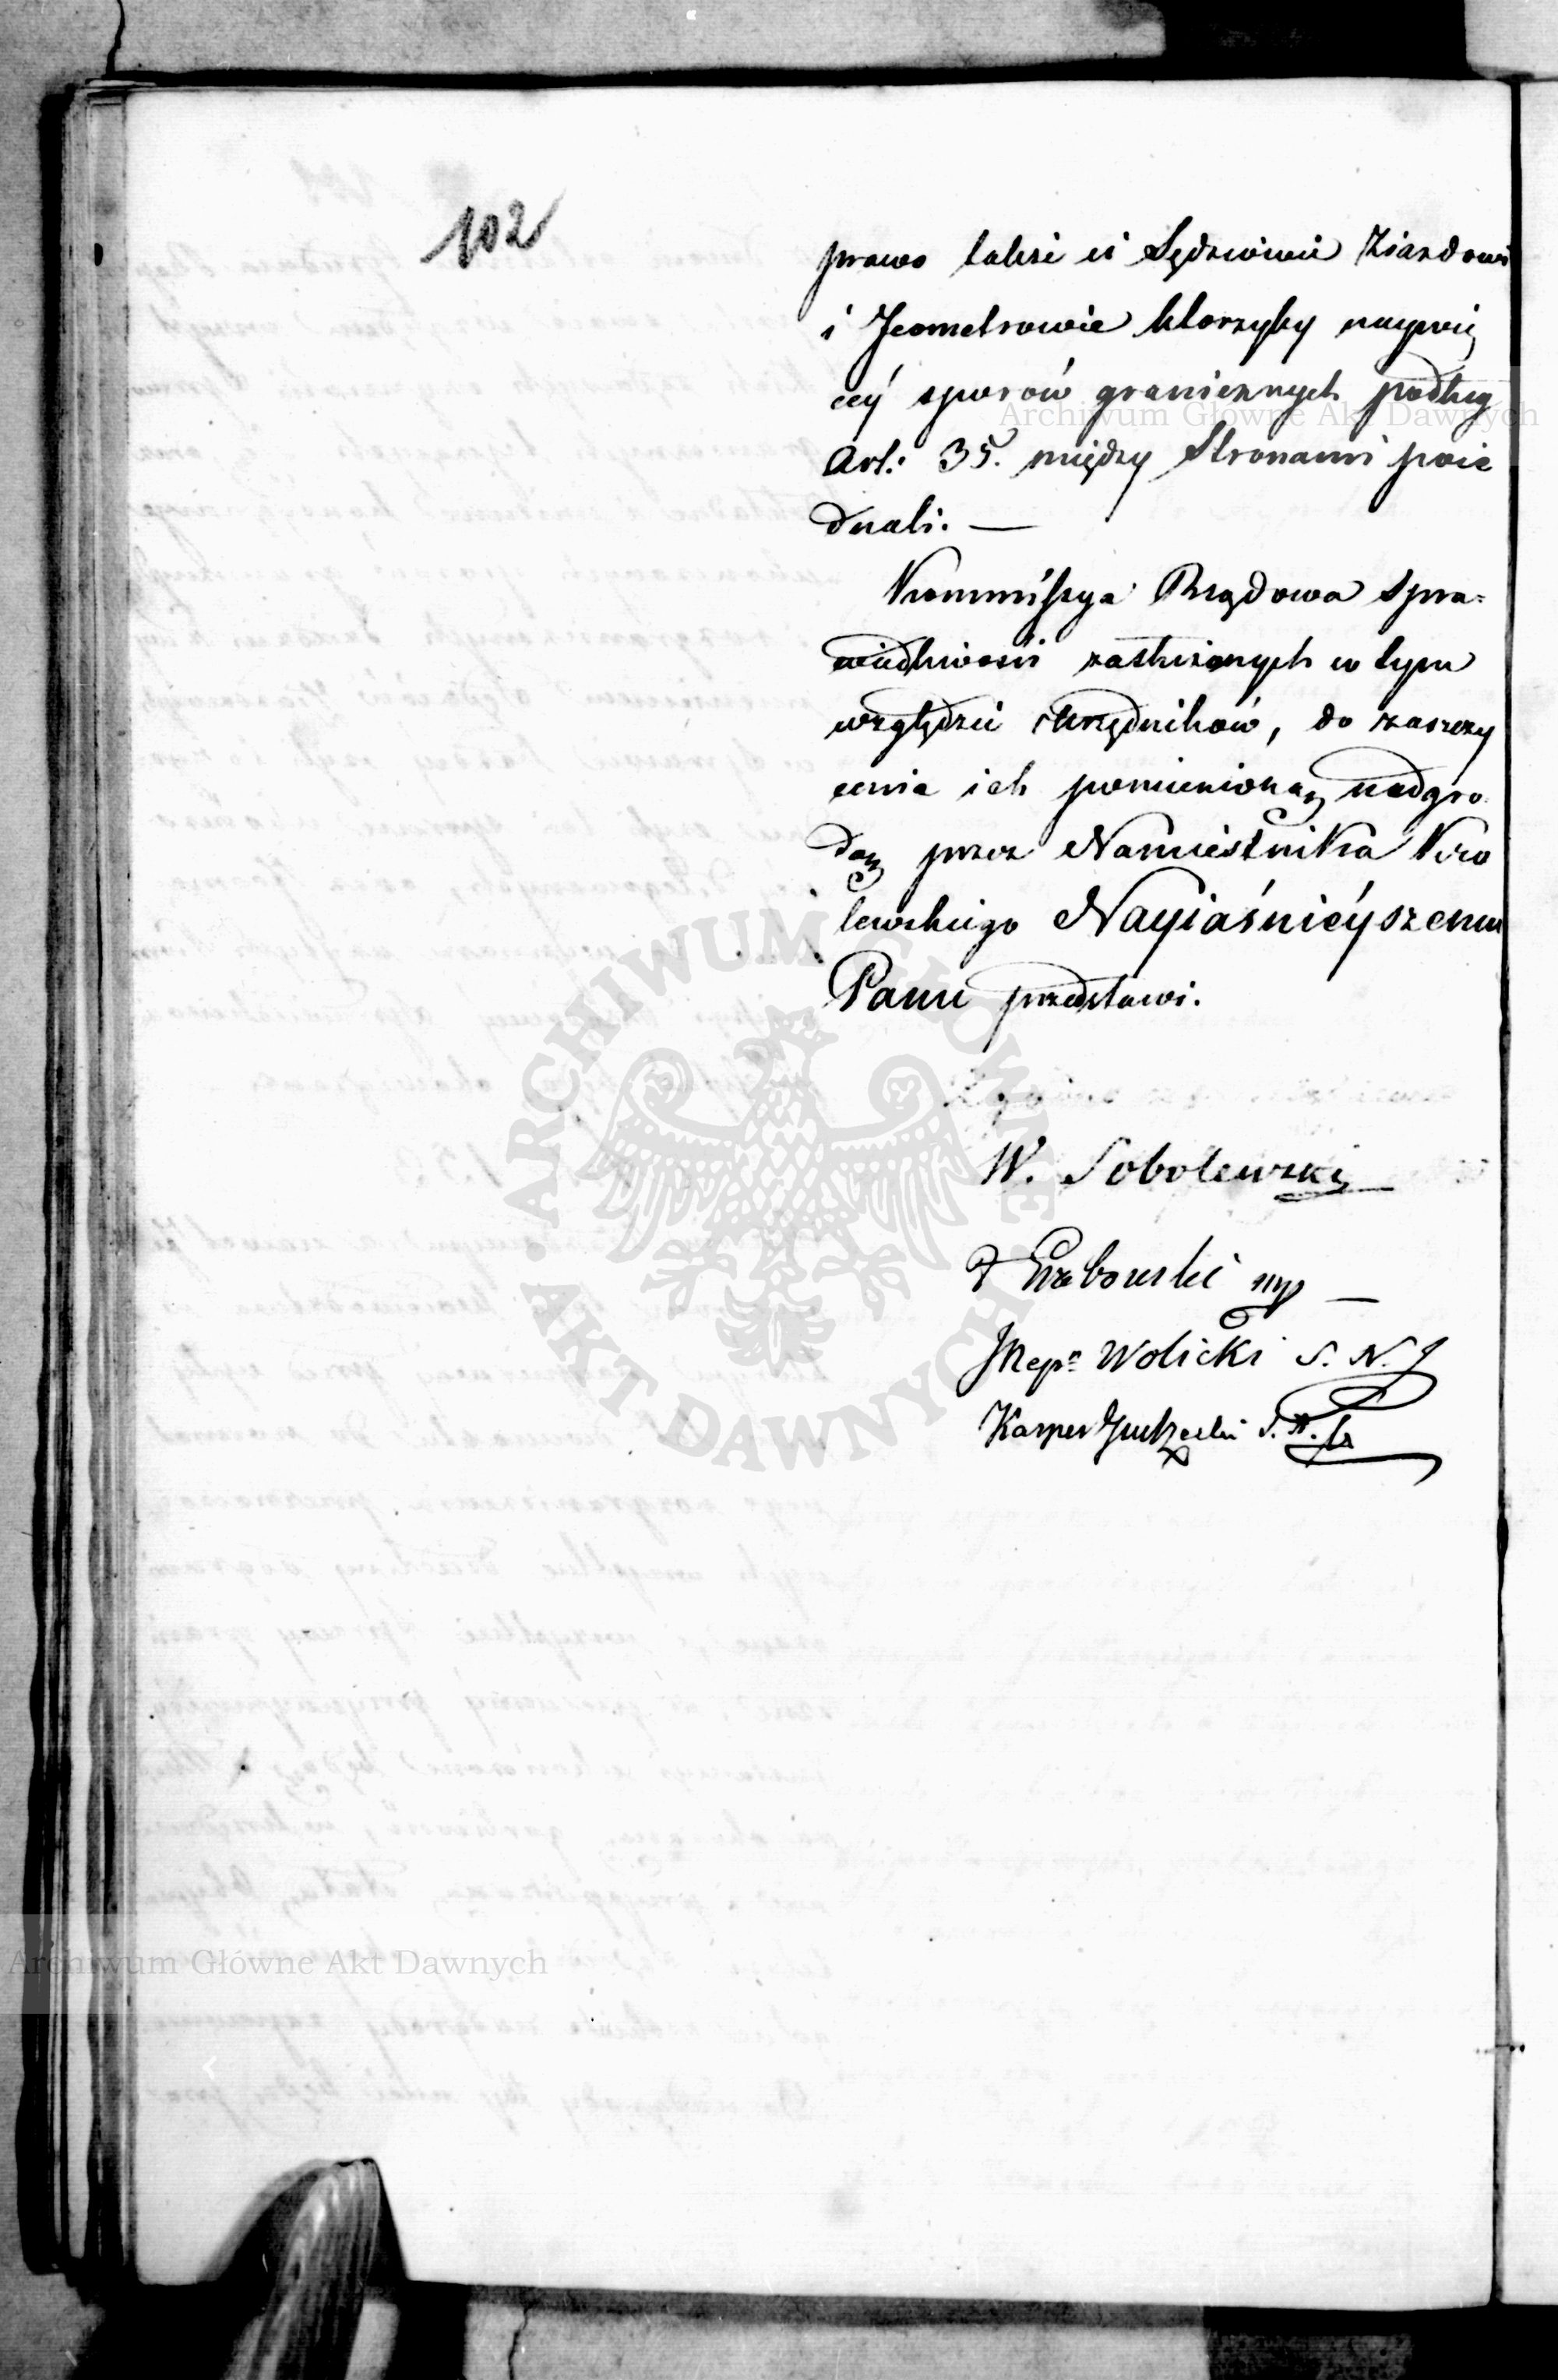 102
prawo także ci Sędziowie Ziazdowi
i Jeometrowie którzyby naywię
céy sporów granicznych podług
Art: 35. między Stronami poie
dnali. —
Kommissya Rządowa Spra-
wiedliwości zasłużonych w tym
względzie Urzędników, do zaszczy
cenia ich pomienioną nadgro
dą przez Namiestnika Kró
lewskiego Nayiaśnieyszemu
Panu przedstawi.
W. Sobolewski
Grabowski mp —
Wolicki S. N.
Kasper
Archiwum Główne Akt Dawnych
ARCHIWUM GŁÓWNE AKT DAWNYCH
Archiwum Główne Akt Dawnych